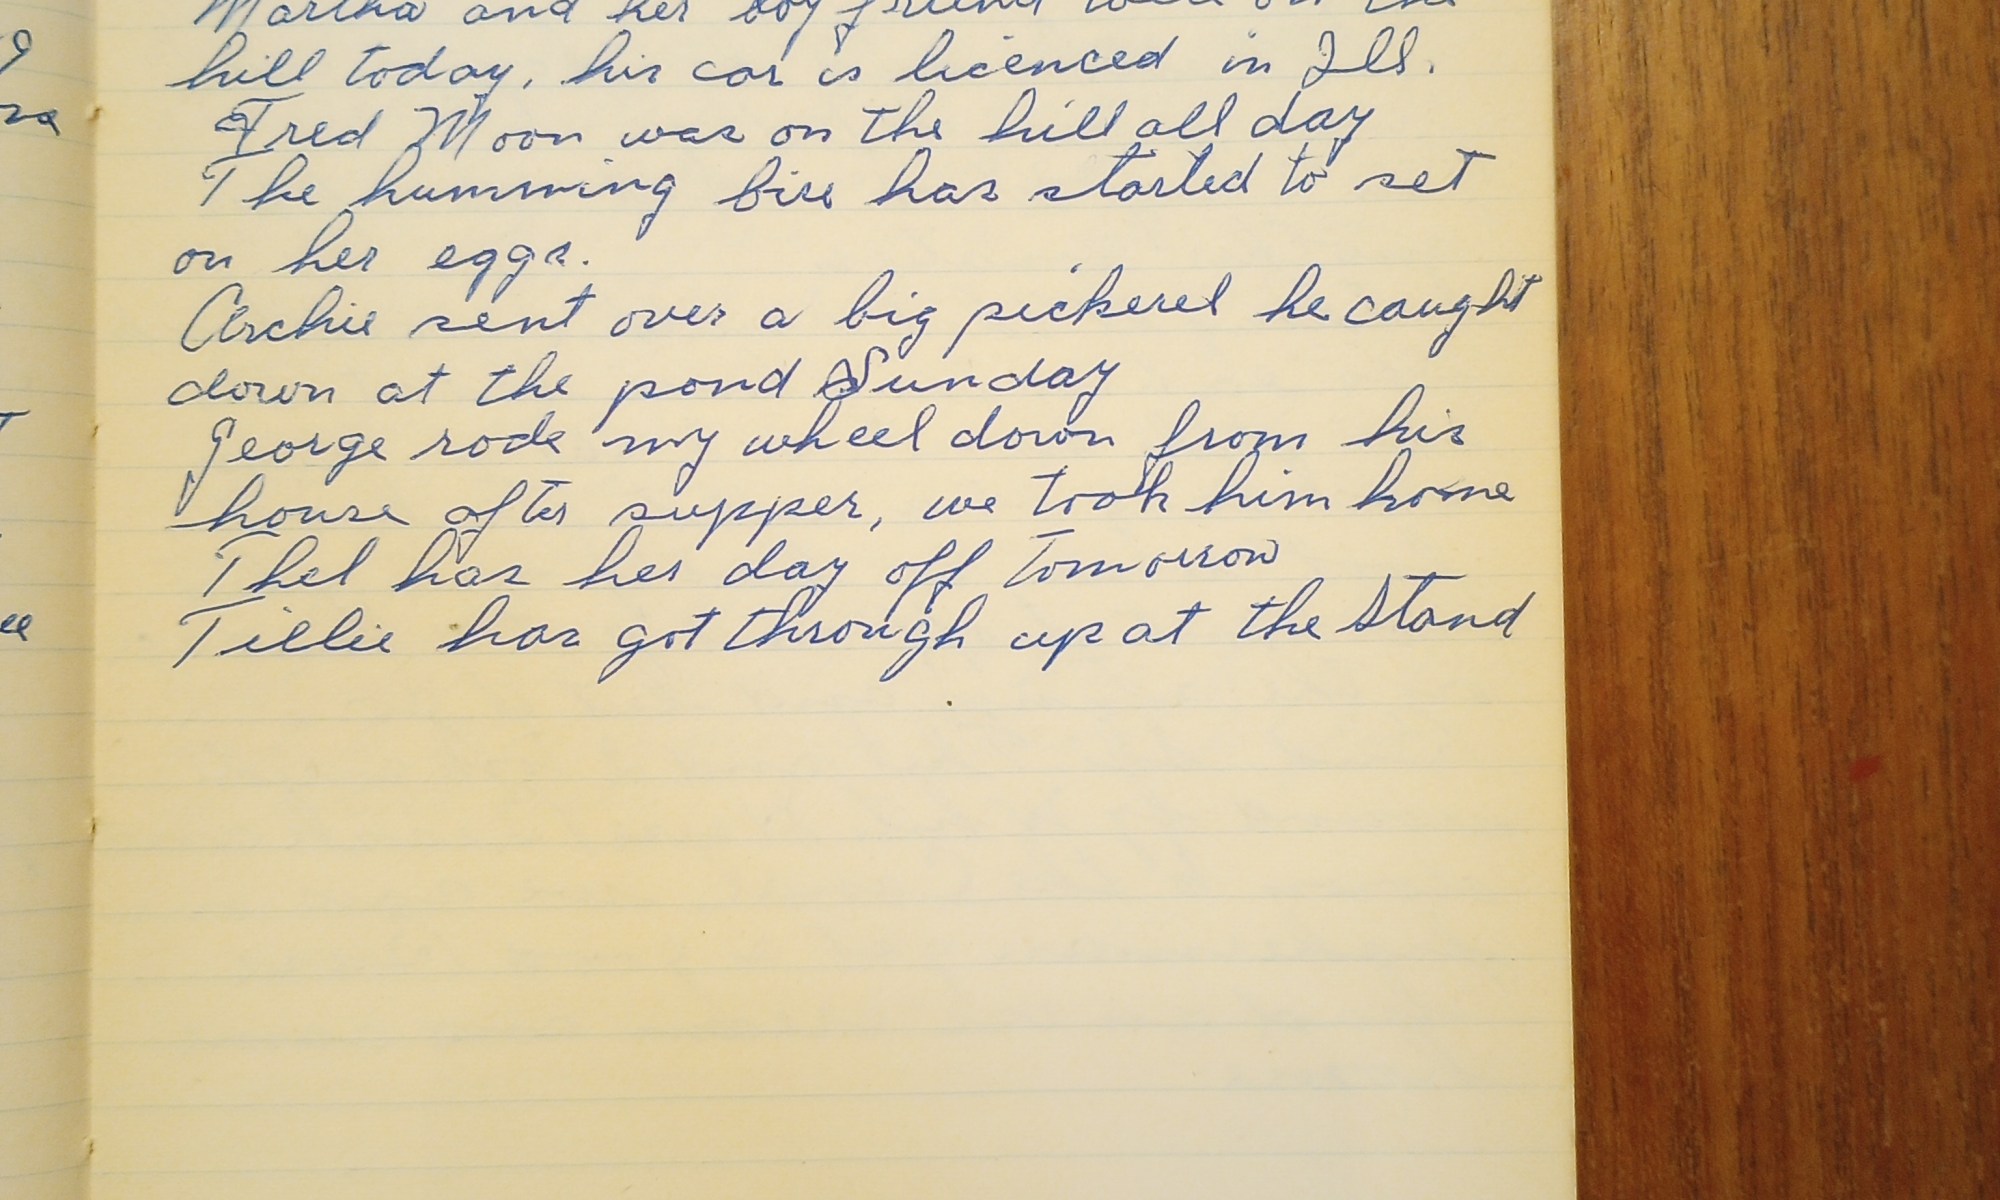 Martha and her boy friend were on the
hill today, his car is licenced in Ill.
Fred Moon was on the hill all day
The humming bire has started to set
on her eggs.
Archie sent over a big pickerel he caught
down at the pond Sunday
George rode my wheel down from his
house after supper, we took him home
Thel has her day off tomorrow
Tillie has got through up at the Stand